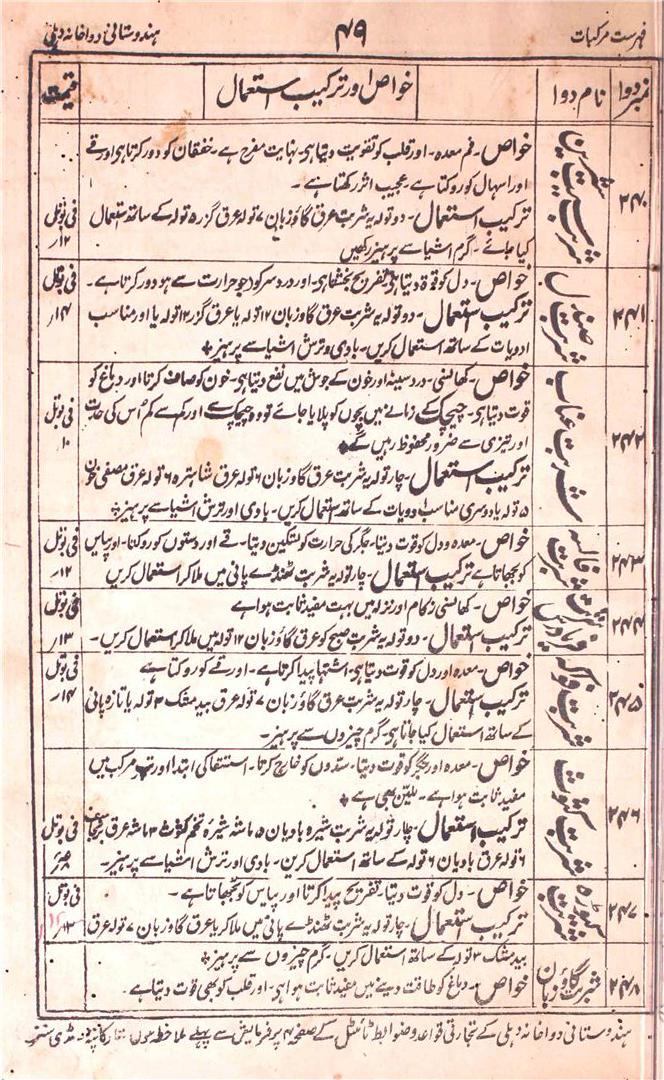 فہرست مرکبات ۴۹ ہندوستانی دواخانہ دہلی
نمبر دوا نام دوا خواص اور ترکیب استعمال قیمت
۲۴۰ شربت سیب شیریں
خواص۔ فم معدہ۔ اور قلب کو تقویت دیتا ہی۔ نہایت مفرح ہے۔ خفقان کو دور کرتا ہی اور قے
اور اسہال کو روکتا ہے۔ عجیب اثر رکھتا ہے۔
ترکیب استعمال۔ دو تولہ یہ شربت عرق گاؤزبان ۷ تولہ عرق گزر ۵ تولہ کے ساتھ استعمال
کیا جائے۔ گرم اشیا سے پرہیز رکھیں
فی بوتل
۱۲؍
۲۴۱ شربت صندل
خواص۔ دل کو قوۃ دیتا ہی تفریح بخشتا ہی۔ اور درد سر کو جو حرارت سے ہو دور کرتا ہے۔
ترکیب استعمال۔ دو تولہ یہ شربت عرق گاوزبان ۱۲ تولہ یا عرق گزر ۱۲ تولہ یا اور مناسب
ادویات کے ساتھ استعمال کریں۔ بادی و ترش اشیا سے پرہیز
فی بوتل
۱۴؍
۲۴۲ شربت عناب
خواص۔ کھانسی۔ درد سینہ اور خون کے جوش میں نفع دیتا ہی۔ خون کو صاف کرتا اور دماغ کو
قوت دیتا ہی۔ چیچک کے زمانے میں بچوں کو پلایا جائے تو وہ چیچک سے اور کم سے کم اُس کی حدت
اور تیزی سے ضرور محفوظ رہیں گے
ترکیب استعمال۔ چار تولہ یہ شربت عرق گاوزبان ۶ تولہ عرق شاہترہ ۶ تولہ عرق مصفی خون
۵ تولہ یا دوسری مناسب ادویات کے ساتھ استعمال کریں۔ بادی اور ترش اشیا سے پرہیز
فی بوتل
۱۰؍
۲۴۳ شربت فالسہ
خواص۔ معدہ و دل کو قوت دیتا۔ جگر کی حرارت کو تسکین دیتا۔ قے اور دستوں کو روکتا۔ اور پیاس
کو بجھاتا ہے ترکیب استعمال۔ چار تولہ یہ شربت ٹھنڈے پانی میں ملا کر استعمال کریں
فی بوتل
۱۲؍
۲۴۴ شربت فریادرس
خواص۔ کھانسی و زکام اور نزلہ میں بہت مفید ثابت ہوا ہے
ترکیب استعمال۔ دو تولہ یہ شربت صبح کو عرق گاؤزبان ۱۲ تولہ میں ملا کر استعمال کریں۔
فی بوتل
۱۳؍
۲۴۵ شربت فواکہ
خواص۔ معدہ اور دل کو قوت دیتا ہی۔ اشتہا پیدا کرتا ہے۔ اور قے کو روکتا ہے
ترکیب استعمال۔ چار تولہ یہ شربت عرق گاؤزبان ۷ تولہ عرق بید مشک ۳ تولہ یا تازہ پانی
کے ساتھ استعمال کیا جاتا ہی۔ گرم چیزوں سے پرہیز۔
فی بوتل
۱۴؍
۲۴۶ شربت کثوث
خواص۔ معدہ اور جگر کو قوت دیتا۔ سدوں کو خارج کرتا۔ استسقا کی ابتدا اور تپ مرکب میں
مفید ثابت ہوا ہے۔ ملین بھی ہے
ترکیب استعمال۔ چار تولہ یہ شربت شیرہ بادیان ۵ ماشہ شیرہ تخم کثوث ۳ ماشہ عرق
۶ تولہ عرق بادیان ۶ تولہ کے ساتھ استعمال کریں۔ بادی اور ترش اشیا سے پرہیز۔
فی بوتل
۲۴۷ شربت کیوڑہ
خواص۔ دل کو قوت دیتا۔ تفریح پیدا کرتا اور پیاس کو بجھاتا ہے۔
ترکیب استعمال۔ چار تولہ یہ شربت ٹھنڈے پانی میں ملا کر یا عرق گاوزبان ۷ تولہ عرق
بید مشک ۳ تولہ کے ساتھ استعمال کریں۔ گرم چیزوں سے پرہیز
فی بوتل
۲۴۸ شربت گاؤزبان
خواص۔ دماغ کو طاقت دینے میں مفید ثابت ہوا ہی۔ اور قلب کو بھی قوت دیتا ہے۔
ہندوستانی دواخانہ دہلی کے تجارتی قواعد و ضوابط ٹائٹل کے صفحہ ۲ پر فرمایش سے پہلے ملاحظہ ہوں۔